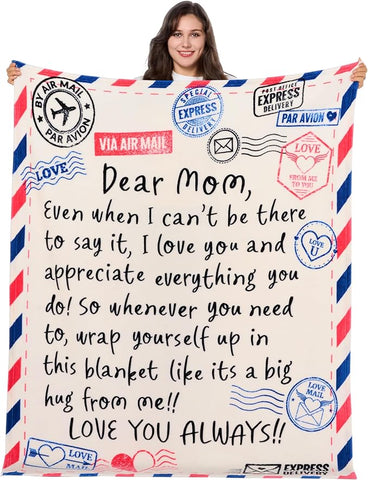 BY AIR MAIL
PAR AVION
SPECIAL
EXPRESS
DELIVERY
POST OFFICE
EXPRESS
DELIVERY
PAR AVION
VIA AIR MAIL
LOVE
LOVE
FROM ME
TO YOU
Dear Mom,
Even when I can't be there
to say it, I love you and
appreciate everything you
do! So whenever you need
to, wrap yourself up in
this blanket like its a big
hug from me!!
LOVE YOU ALWAYS!!
LOVE
U
LOVE
MAIL
LOVE
MAIL
EXPRESS
DELIVERY